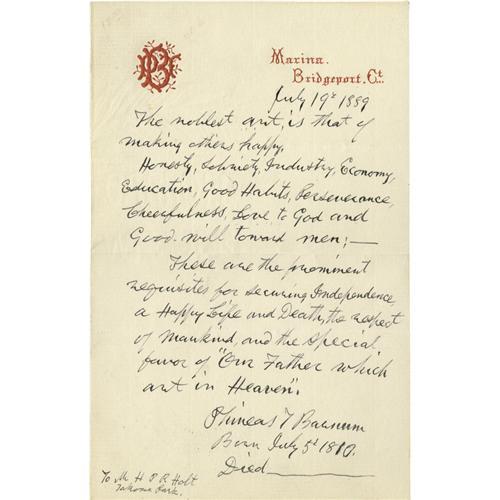 PTB
Marina.
Bridgeport, Ct.
July 19t 1889
The noblest art is that of
making others happy.
Honesty, Sobriety, Industry, Economy,
Education, Good Habits, Perseverance,
Cheerfulness, Love to God and
Good will toward men;—
These are the prominent
requisites for securing Independence,
a Happy Life and Death, the respect
of Mankind, and the special
favor of "Our Father which
art in Heaven".
Phineas T Barnum
Born July 5t 1810.
Died
To Mr H P R Holt
Takoma Park.